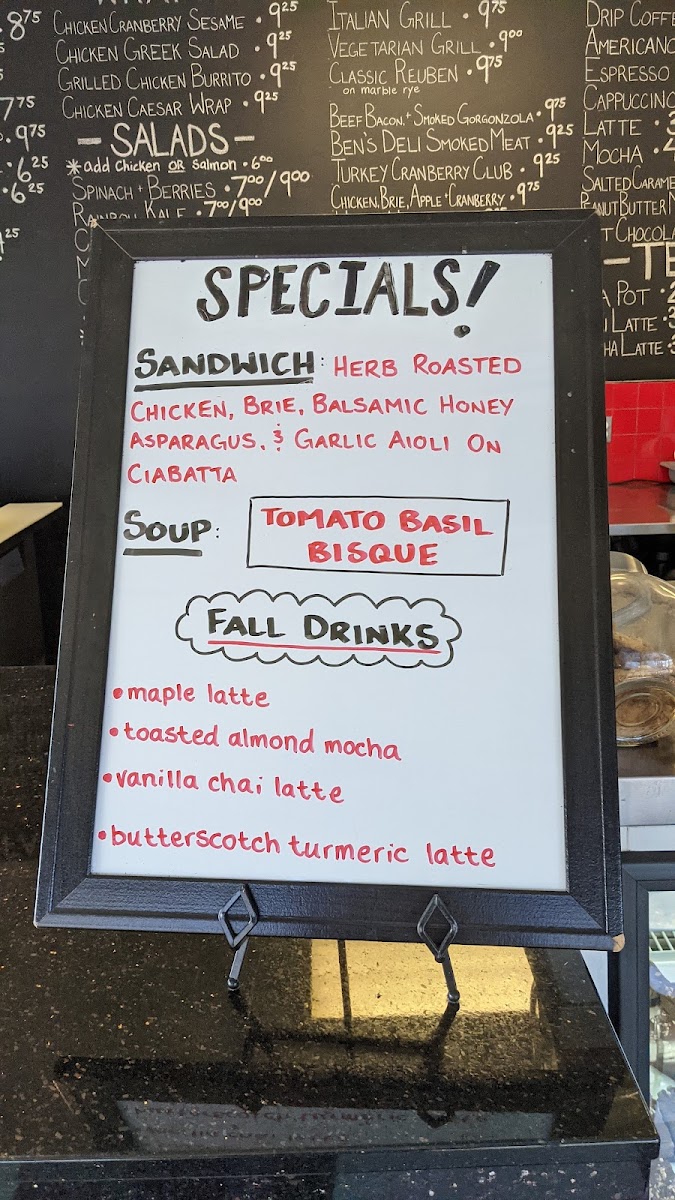 .875
775
.975
.625
.625
Chicken Cranberry Sesame • 925
Chicken Greek Salad • 925
Grilled Chicken Burrito • 925
Chicken Caesar Wrap • 925
—SALADS—
*add Chicken OR Salmon • 600
Spinach + Berries • 700/900
Rainbow Kale • 700/900
Italian Grill • 975
Vegetarian Grill • 900
Classic Reuben • 975
on marble rye
Beef Bacon + Smoked Gorgonzola • 975
Ben's Deli Smoked Meat • 925
Turkey Cranberry Club • 925
Chicken, Brie, Apple + Cranberry • 975
Drip
Americano
Espresso
Cappuccino
Latte •
Mocha •
Salted
Peanut Butter
Pot •
Latte •
Latte •
SPECIALS!
SANDWICH: HERB ROASTED
CHICKEN, BRIE, BALSAMIC HONEY
ASPARAGUS, & GARLIC AIOLI ON
CIABATTA
SOUP: TOMATO BASIL
BISQUE
FALL DRINKS
•maple latte
•toasted almond mocha
•vanilla chai latte
•butterscotch turmeric latte